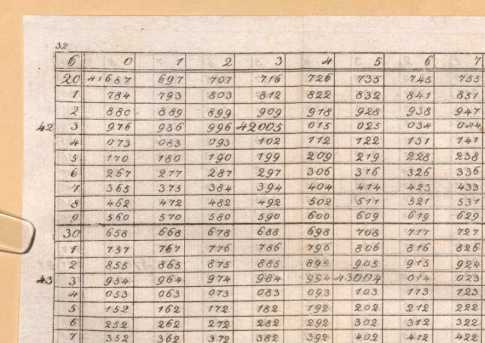 32
6 0 1 2 3 4 5 6 7
20 41687 697 707 716 726 735 745 755
1 784 793 803 812 822 832 841 851
2 880 889 899 909 918 928 938 947
42 3 976 986 996 42005 015 025 034 044
4 073 083 093 102 112 122 131 141
5 170 180 190 199 209 219 228 238
6 267 277 287 297 306 316 326 336
7 365 375 384 394 404 414 423 433
8 462 472 482 492 502 511 521 531
9 560 570 580 590 600 609 619 629
30 658 668 678 688 698 708 717 727
1 757 767 776 786 796 806 816 826
2 855 865 875 885 895 905 915 924
43 3 954 964 974 984 994 43004 014 023
4 053 063 073 083 093 103 113 123
5 152 162 172 182 192 202 212 222
6 252 262 272 282 292 302 312 322
7 352 362 372 382 392 402 412 422